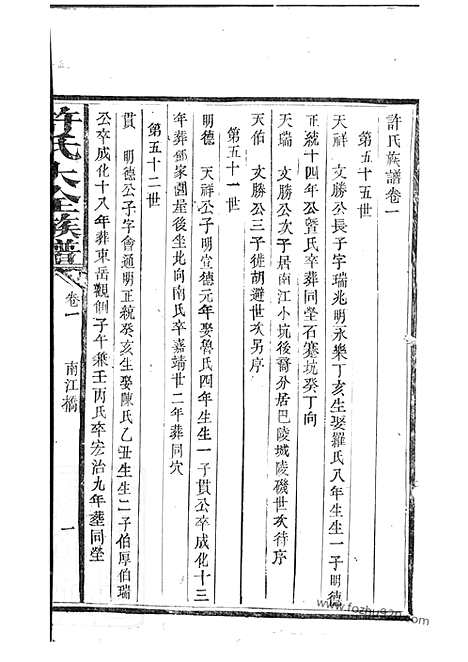 許氏族譜卷一
第五十五世
天祥 文勝公長子字瑞兆明永樂丁亥生娶羅氏八年生生一子明德
正統十四年公暨氏卒葬同塋石塞坑癸丁向
天瑞 文勝公次子居南江小坑後裔分居巴陵城陵磯世次待序
天佑 文勝公三子徙胡避世次另序
第五十一世
明德 天祥公子明宣德元年娶魯氏四年生生一子貫公卒成化十三
年葬鄧家園屋後坐北向南氏卒嘉靖廿二年葬同穴
第五十二世
貫 明德公子字會通明正統癸亥生娶陳氏乙丑生生二子伯厚伯瑞
公卒成化十八年葬東岳觀側子午兼壬丙氏卒宏治九年葬同塋
許氏大全族譜
卷一
南江橋
一
www.fozhu920.com